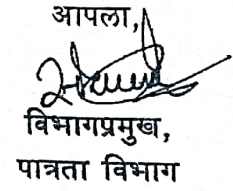 आपला,
विभागप्रमुख,
पात्रता विभाग